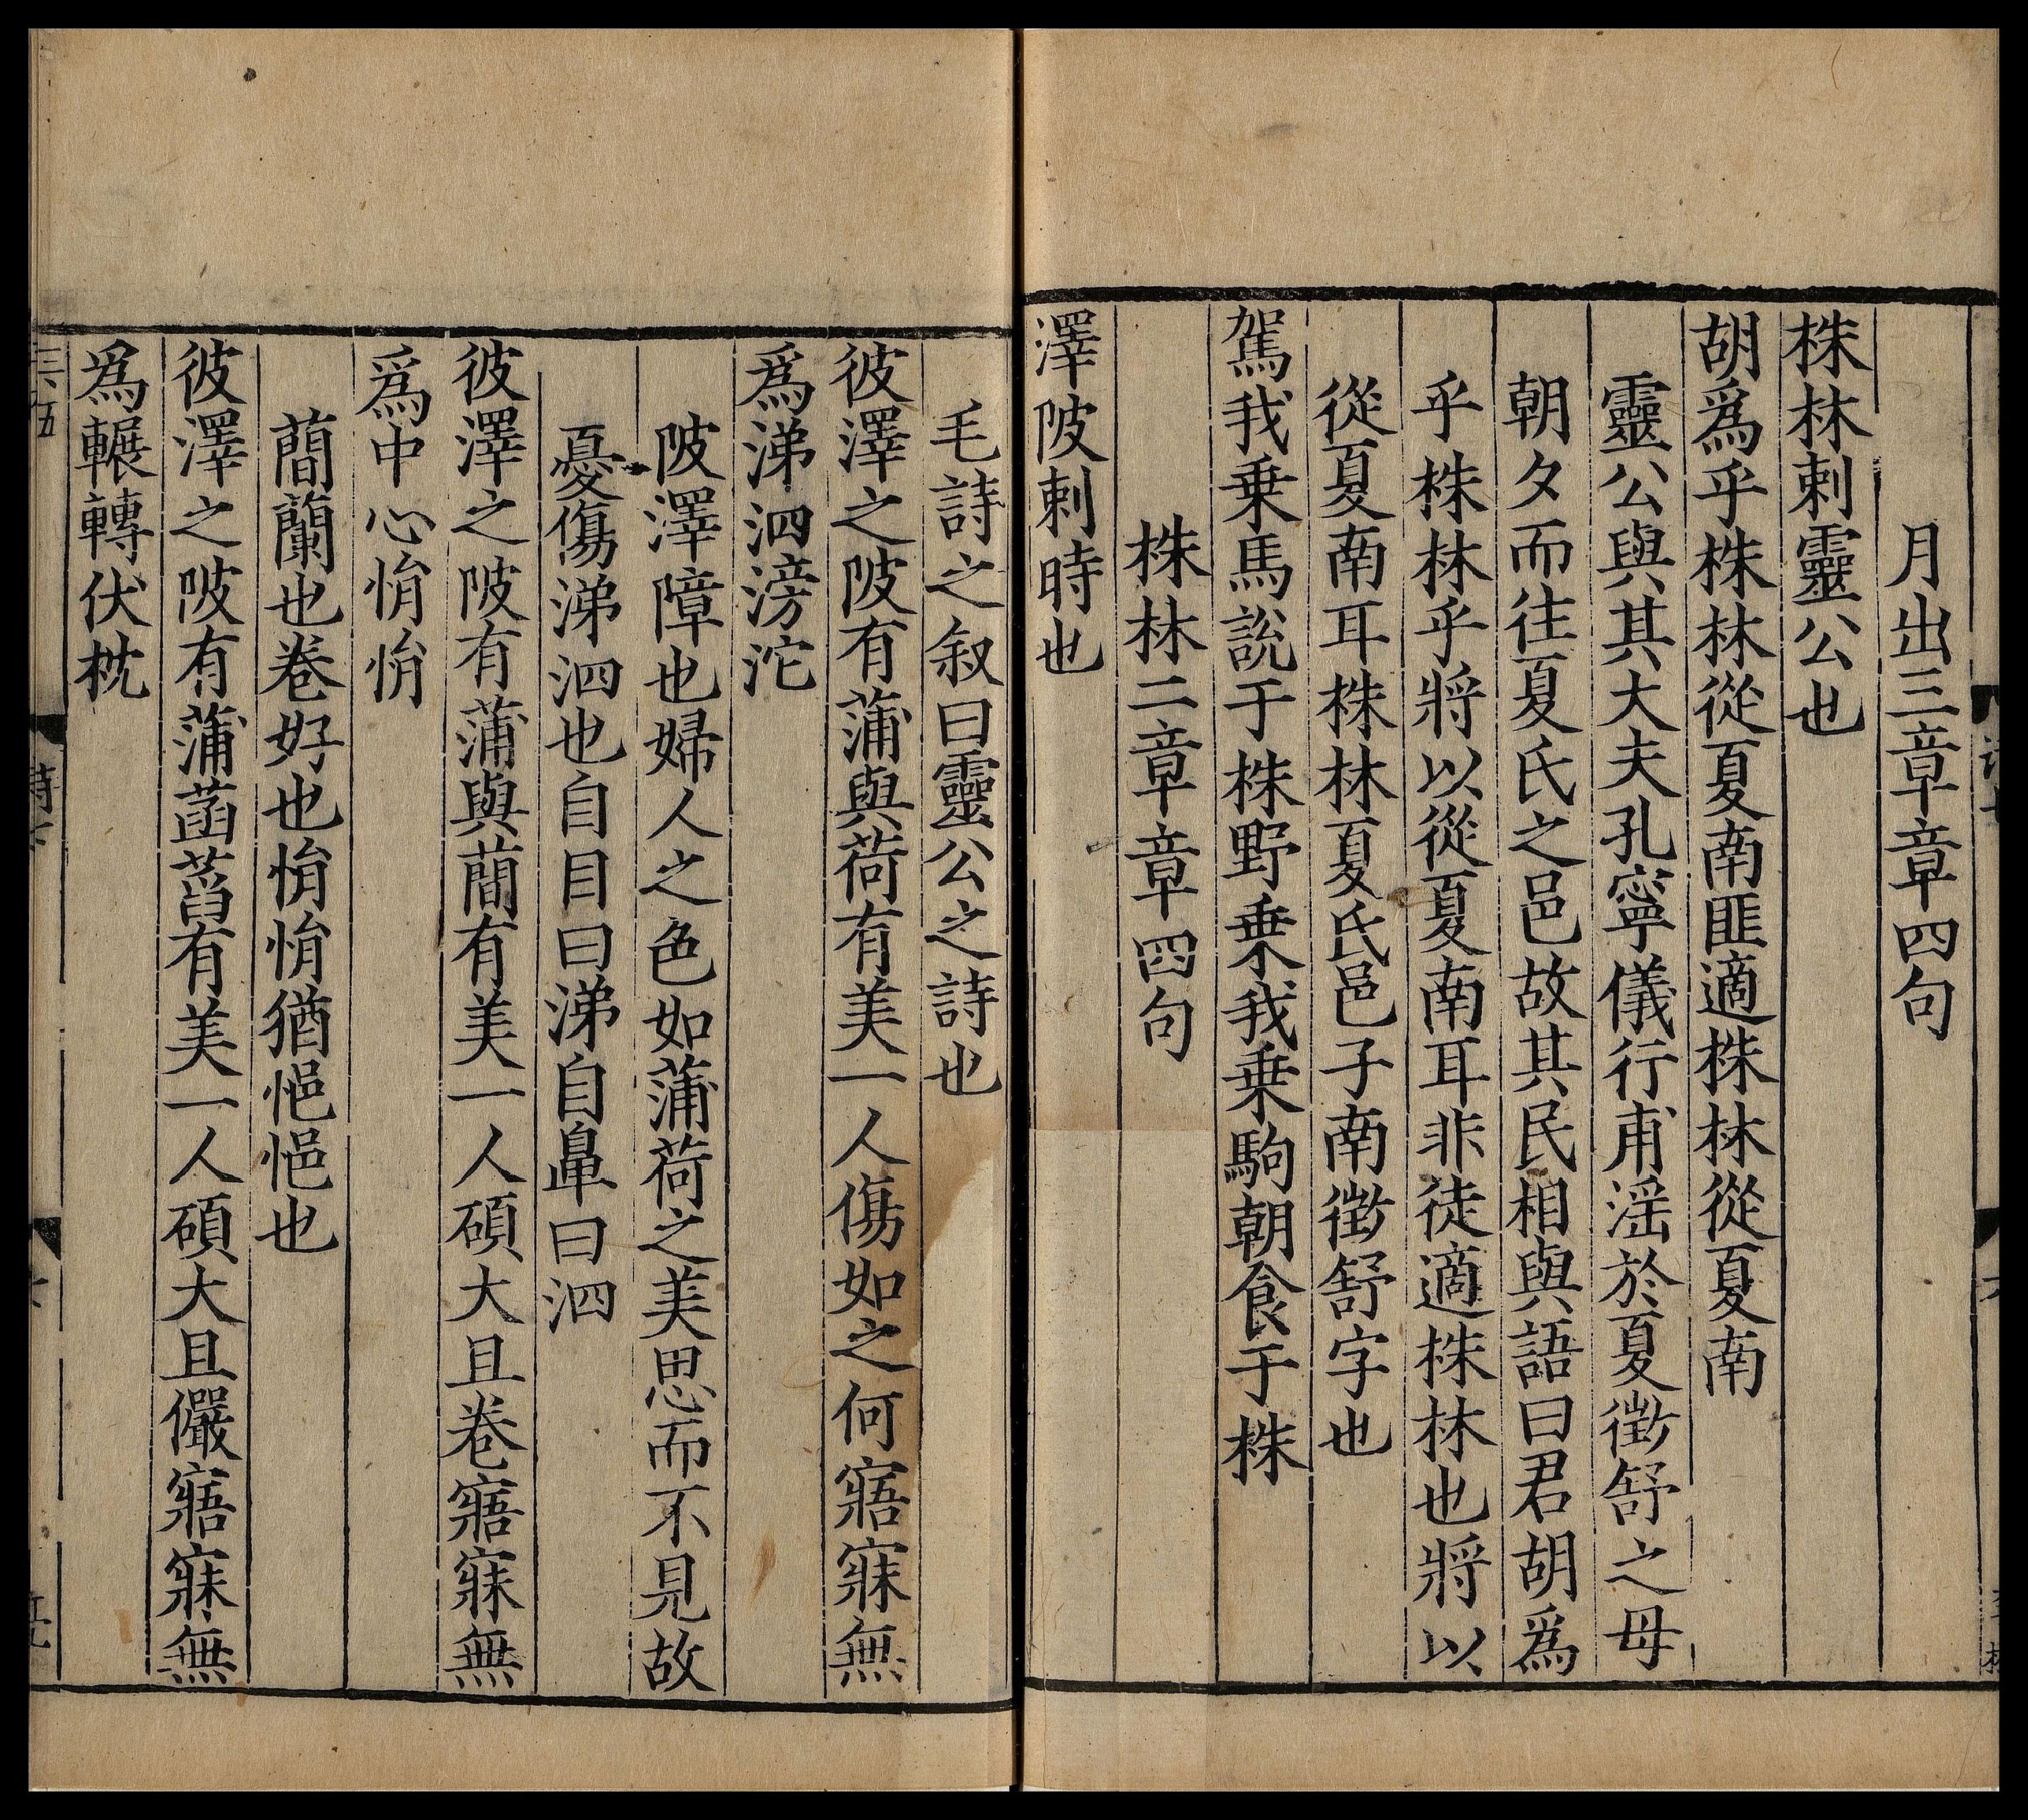 月出三章章四句
株林刺靈公也
胡爲乎株林從夏南匪適株林從夏南
靈公與其大夫孔寧儀行甫淫於夏徵舒之母
朝夕而往夏氏之邑故其民相與語曰君胡爲
乎株林乎將以從夏南耳非徒適株林也將以
從夏南耳株林夏氏邑子南徵舒字也
駕我乗馬說于株野乗我乗駒朝食于株
株林二章章四句
澤陂刺時也
毛詩之叙曰靈公之詩也
彼澤之陂有蒲與荷有美一人傷如之何寤寐無
爲涕泗滂沱
陂澤障也婦人之色如蒲荷之美思而不見故
憂傷涕泗也自目曰涕自鼻曰泗
彼澤之陂有蒲與蕑有美一人碩大且卷寤寐無
爲中心悁悁
蕑蘭也卷好也悁悁猶悒悒也
彼澤之陂有蒲菡萏有美一人碩大且儼寤寐無
爲輾轉伏枕